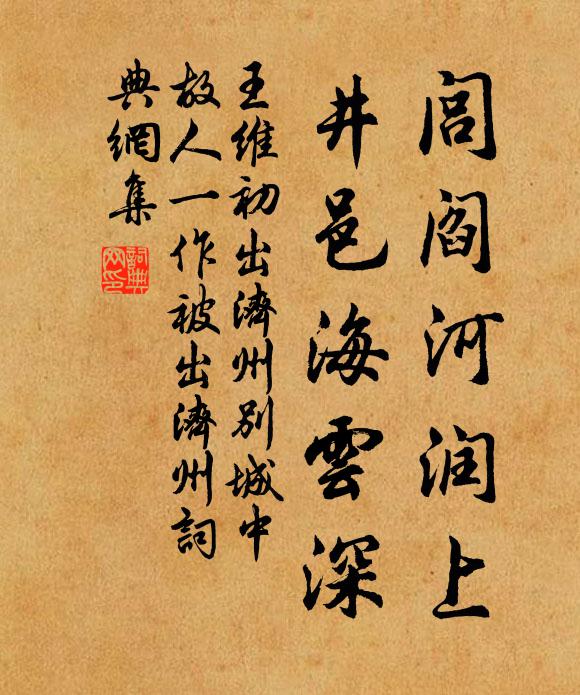 閭閻河潤上
井邑海雲深
王維初出濟州別城中
故人一作被出濟州詞
典網集
詞典
網印